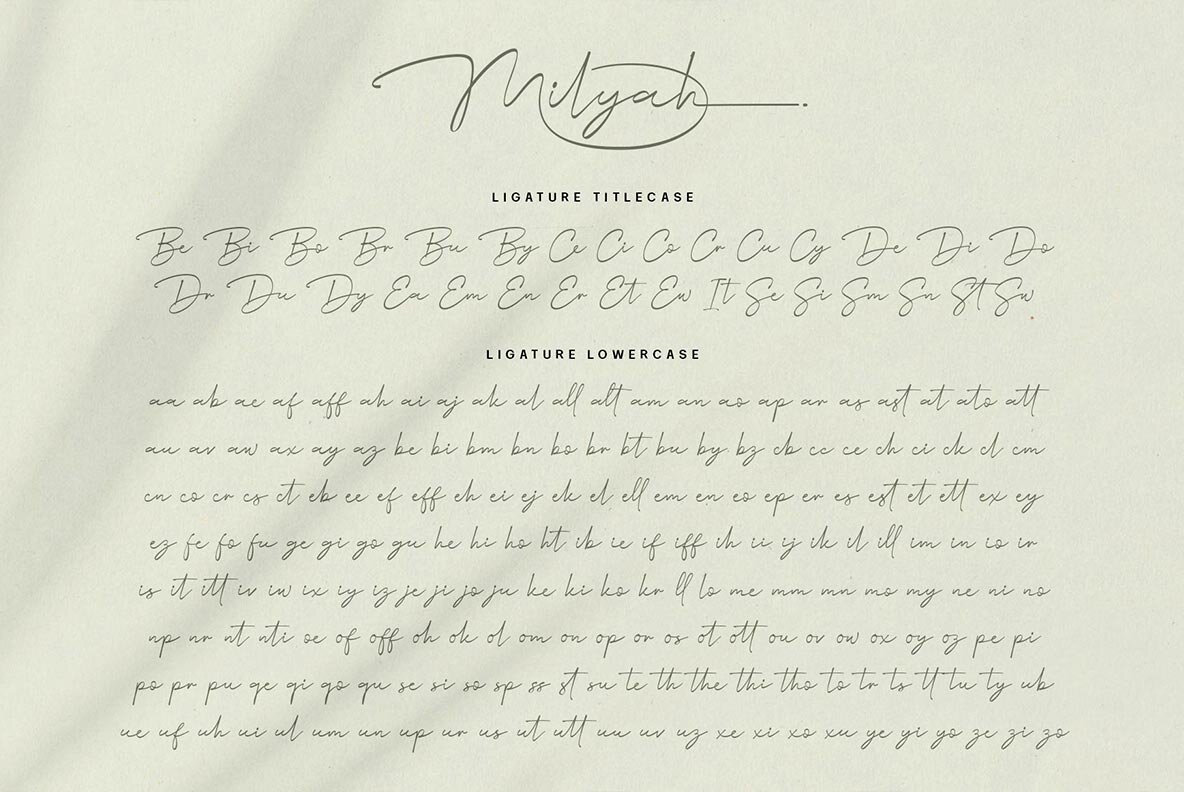 Milyah
LIGATURE TITLECASE
Be Bi Bo Br Bu By Ce Ci Co Cr Cu Cy De Di Do
Dr Du Dy Ea Em En Er Et Ew It Se Si Sm Sn St Sw
LIGATURE LOWERCASE
aa ab ae af aff ah ai aj ak al all alt am an ao ap ar as ast at ato att
au av aw ax ay az be bi bm bn bo br bt bu by bz cb cc ce ch ci ck cl cm
cn co cr cs ct eb ee ef eff eh ei ej ek el ell em en eo ep er es est et ett ex ey
ez fe fo fu ge gi go gu he hi ho ht ib ie if iff ih ii ij ik il ill im in io ir
is it itt iv iw ix iy iz je ji jo ju ke ki ko kr ll lo me mm mn mo my ne ni no
np nr nt nti oe of off oh ok ol om on op or os ot ott ou ov ow ox oy oz pe pi
po pr pu qe qi qo qu se si so sp ss st su te th the thi tho to tr ts tt tu ty ub
ue uf uh ui ul um un up ur us ut utt uu uv uz xe xi xo xu ye yi yo ze zi zo